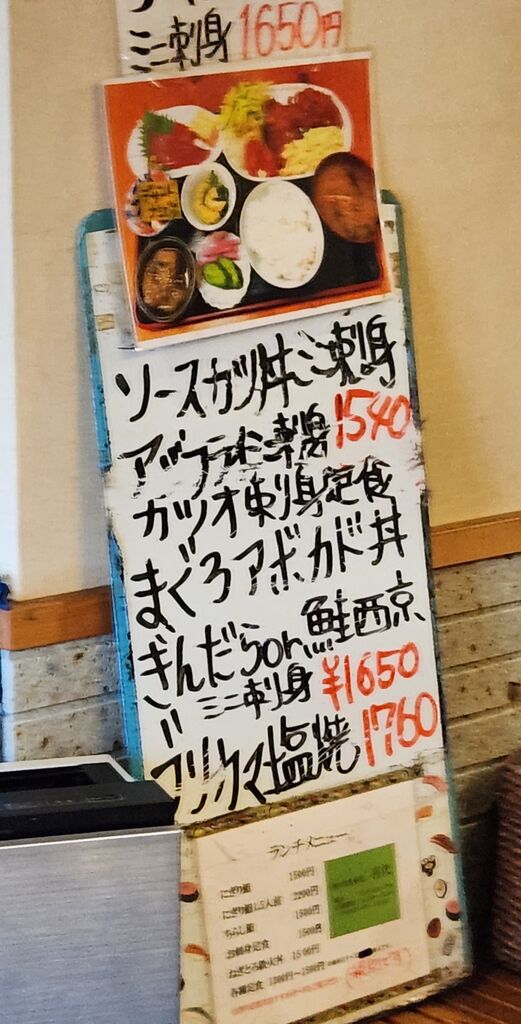 ミニ刺身 1650円
ソースカツ丼ミニ刺身
刺身 1540
カツオ刺身定食
まぐろアボカド丼
ぎんだらor鮭西京
ミニ刺身 ¥1650
ブリカマ塩焼 1760
ランチメニュー
にぎり鮨 1500円
にぎり鮨1.5人前 2200円
ちらし鮨
お刺身定食 1500円
ねぎとろ鉄火丼 1500円
各種定食